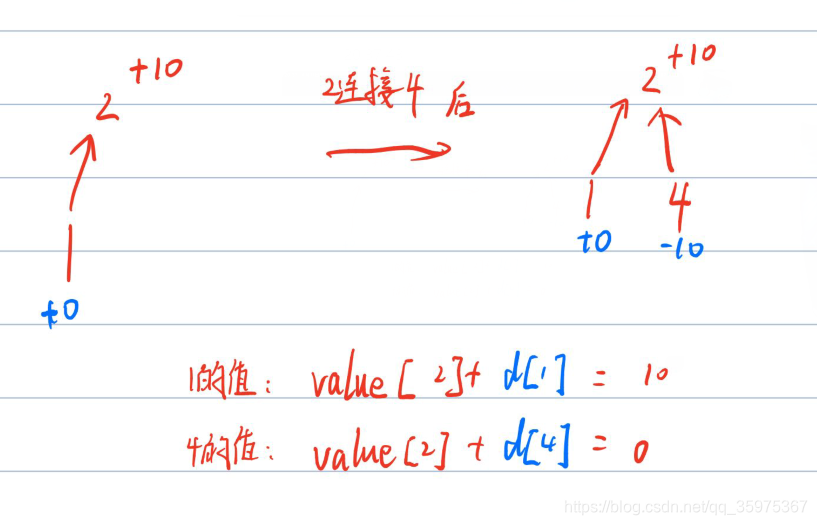 +10
2
1
+0
2连接4后
+10
2
1
4
+0
-10
1的值: value[2]+d[1]=10
4的值: value[2]+d[4]=0
https://blog.csdn.net/qq_35975367